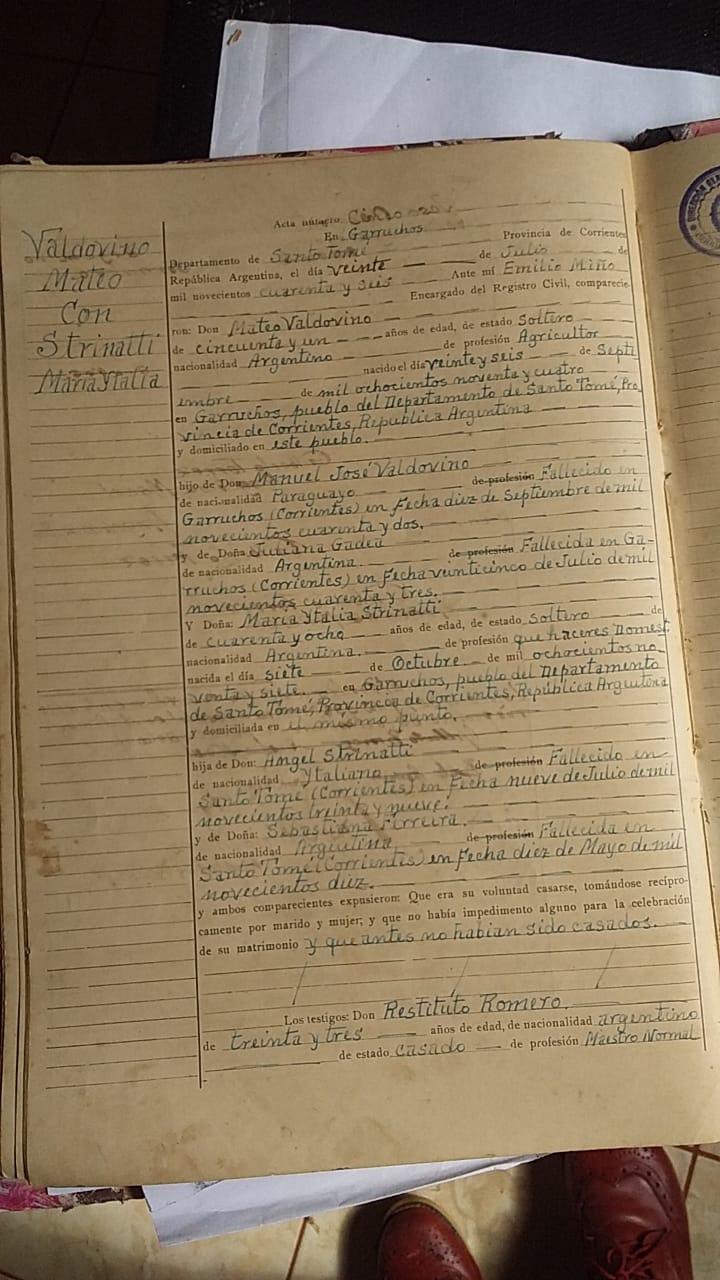 Valdovino
Mateo
Con
Strinatti
María Ytalia
Acta número
En Garruchos Provincia de Corrientes
Departamento de Santo Tomé de Julio de
República Argentina, el día veinte
mil novecientos cuarenta y seis Ante mí Emilio Miño
Encargado del Registro Civil, comparecie-
ron: Don Mateo Valdovino
de cincuenta y un años de edad, de estado Soltero
nacionalidad Argentino de profesión Agricultor
nacido el día veinte y seis de Septi
embre de mil ochocientos noventa y cuatro
en Garruchos, pueblo del Departamento de Santo Tomé, Pro
vincia de Corrientes, República Argentina
y domiciliado en este pueblo.
hijo de Don: Manuel José Valdovino
de nacionalidad Paraguayo de profesión Fallecido en
Garruchos (Corrientes) en Fecha diez de Septiembre de mil
novecientos cuarenta y dos.
y de Doña Juliana Gadea
de nacionalidad Argentina. de profesión Fallecida en Ga-
rruchos (Corrientes) en Fecha veinticinco de Julio de mil
novecientos cuarenta y tres.
Y Doña: María Ytalia Strinatti
de cuarenta y ocho años de edad, de estado soltero de
nacionalidad Argentina. de profesión que haceres Domest.
nacida el día siete de Octubre de mil ochocientos no-
venta y siete. en Garruchos, pueblo del Departamento
de Santo Tomé, Provincia de Corrientes, República Argentina
y domiciliada en el mismo punto.
hija de Don: Angel Strinatti
de nacionalidad Ytaliano de profesión Fallecido en
Santo Tomé (Corrientes) en Fecha nueve de Julio de mil
novecientos treinta y nueve.
y de Doña: Sebastiana Ferreira.
de nacionalidad Argentina de profesión Fallecida en
Santo Tomé (Corrientes) en Fecha diez de Mayo de mil
novecientos diez.
y ambos comparecientes expusieron: Que era su voluntad casarse, tomándose recípro-
camente por marido y mujer; y que no había impedimento alguno para la celebración
de su matrimonio y que antes no habian sido casados.
Los testigos: Don Restituto Romero
de treinta y tres años de edad, de nacionalidad argentino
de estado casado de profesión Maestro Normal